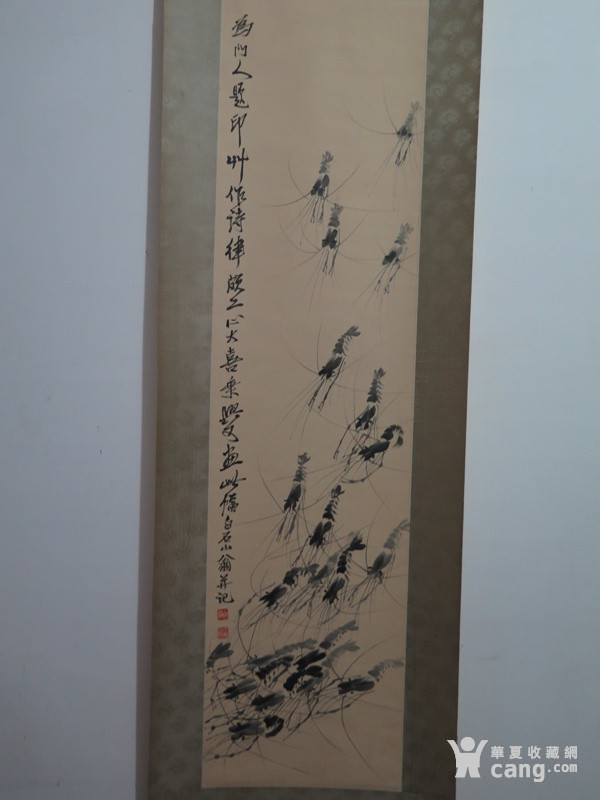 為門人題印艸作詩律頗工心大喜乘興又畫此幅白石山翁并記
華夏收藏網
cang.com